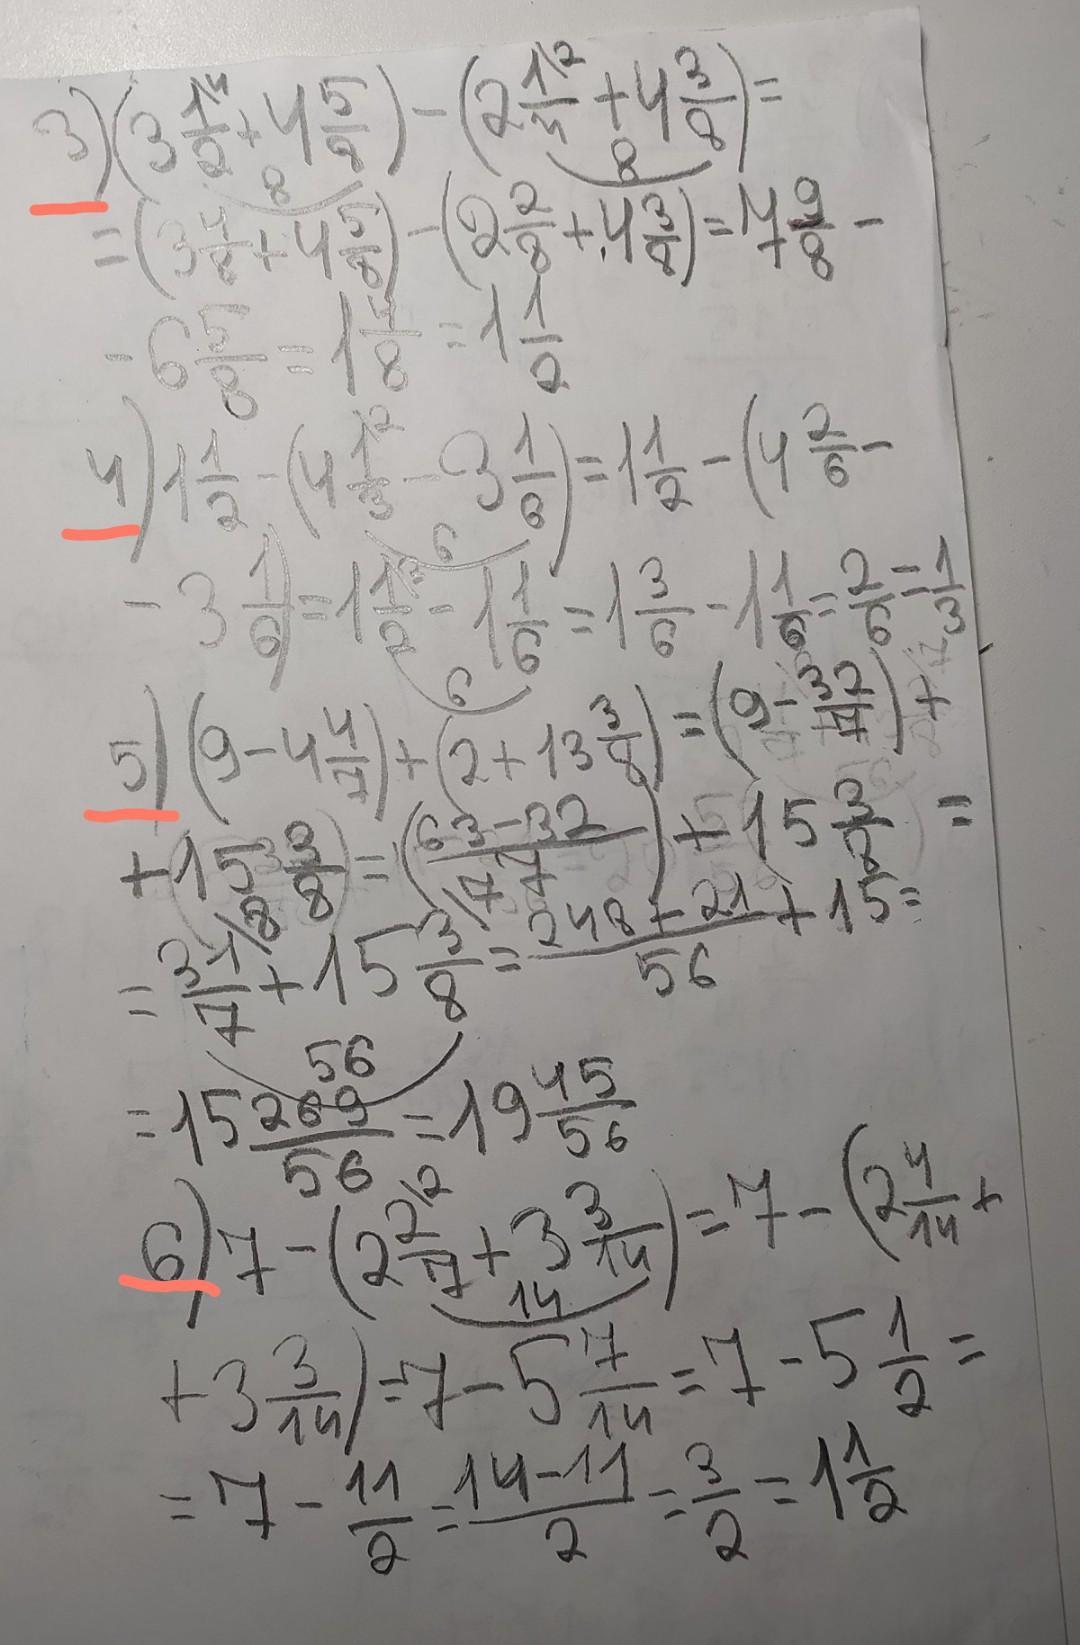 3) (3 1/2 \4 + 4 5/8) - (2 1/4 \2 + 4 3/8) =
8 8
= (3 4/8 + 4 5/8) - (2 2/8 + 4 3/8) = 7 9/8 -
- 6 5/8 = 1 4/8 = 1 1/2
4) 1 1/2 - (4 1/3 \2 - 3 1/6) = 1 1/2 - (4 2/6 -
6
- 3 1/6) = 1 1/2 \3 - 1 1/6 = 1 3/6 - 1 1/6 = 2/6 = 1/3
6
5) (9 - 4 4/7) + (2 + 13 3/8) = (9 - 32/7) +
+ (15 3/8) = (63-32/7) + 15 3/8 =
= 31/7 \8 + 15 3/8 \7 = 248+21/56 + 15 =
56
= 15 269/56 = 19 45/56
6) 7 - (2 2/7 \2 + 3 3/14) = 7 - (2 4/14 +
14
+ 3 3/14) = 7 - 5 7/14 = 7 - 5 1/2 =
= 7 - 11/2 = 14-11/2 = 3/2 = 1 1/2